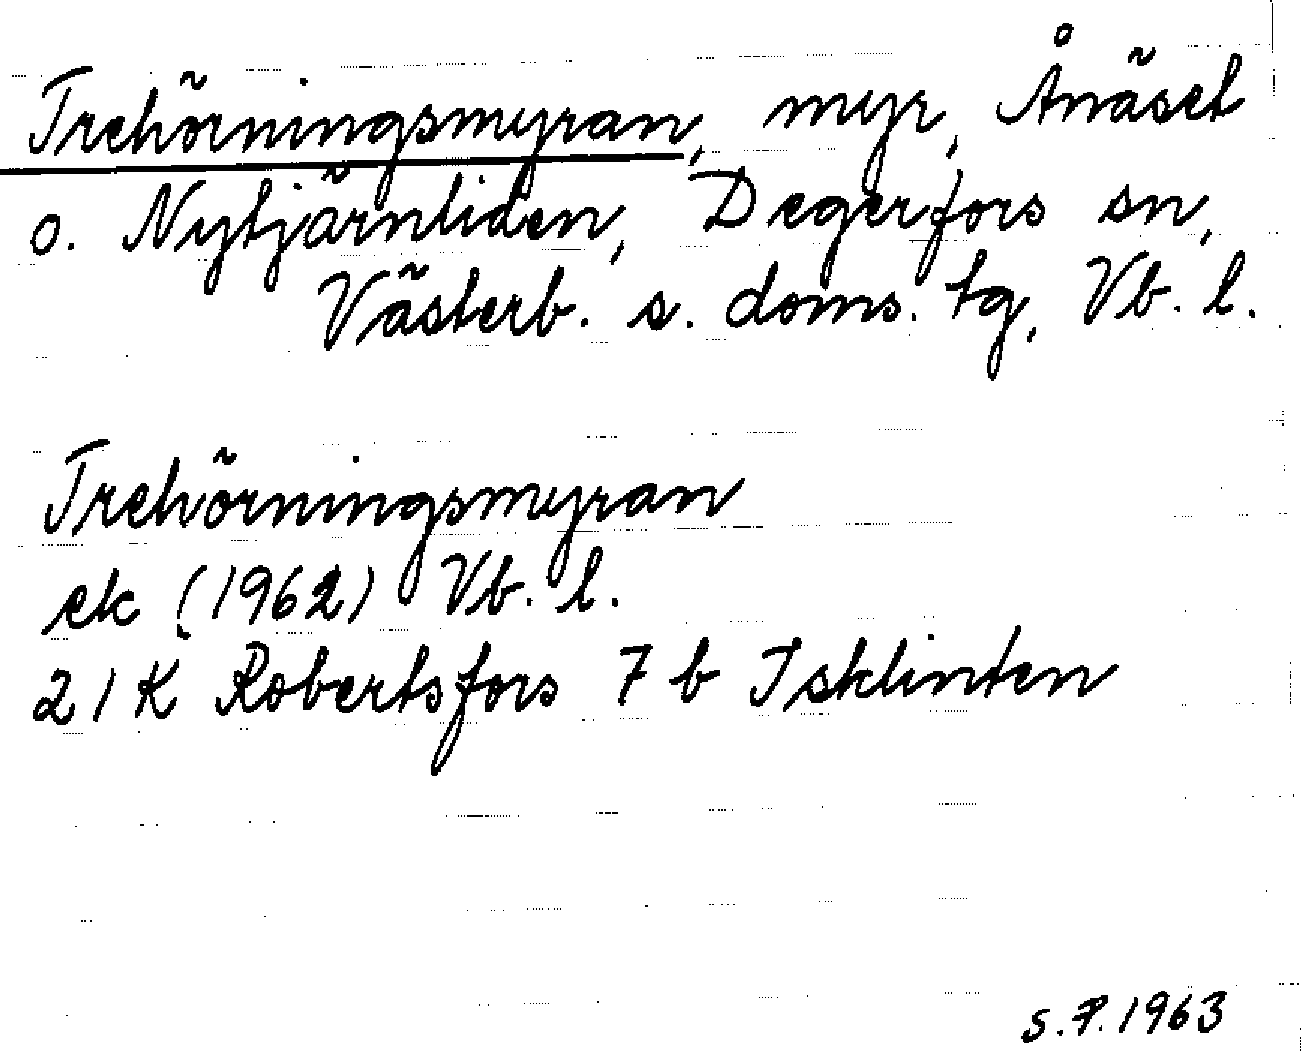 Trehörningsmyran, myr, Ånäset
o. Nytjärnliden, Degerfors sn,
Västerb. s. doms. tg, Vb. l.
Trehörningsmyran
ek (1962) Vb. l.
21 K Robertsfors 7 b Isklinten
S.P. 1963